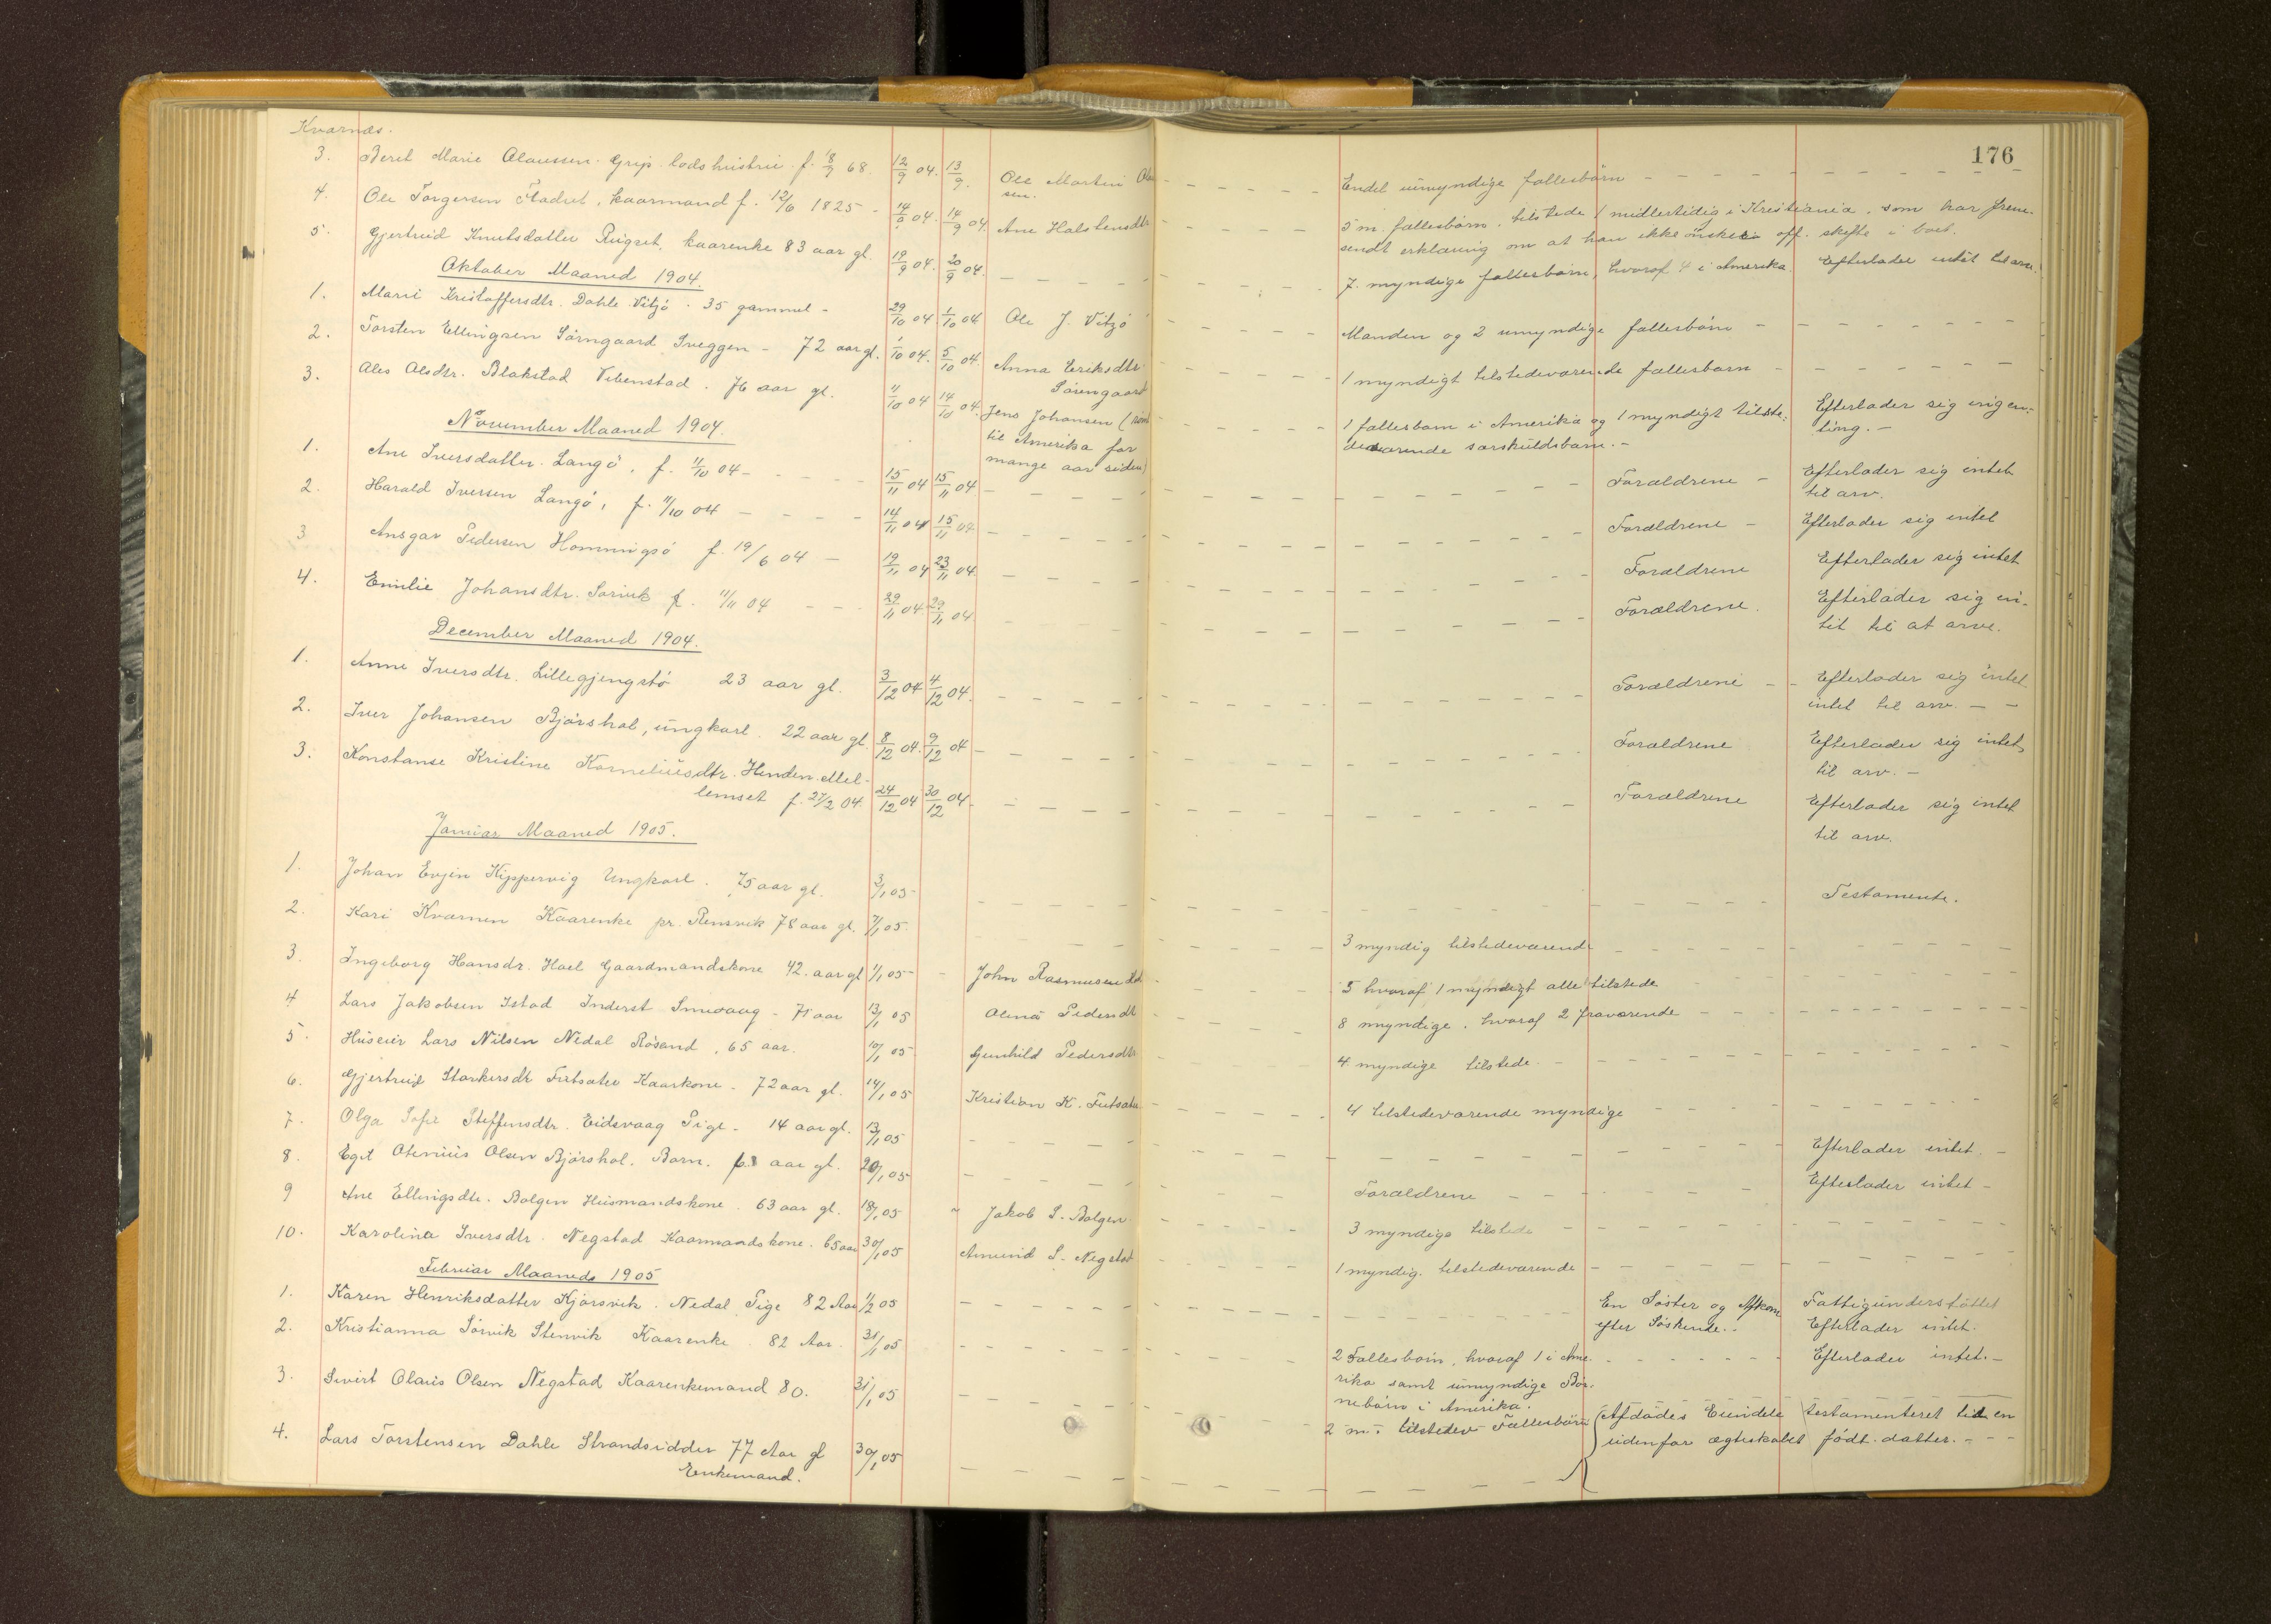 176
Kvarnæs.
3. Beret Marie Olaussen. Grip. lods hustru f. 18/7 68. 12/9 04. 13/9. Ole Martin Olau-
sen. Endel umyndige fællesbörn
4. Ole Torgersen Fladset, kaarmand f. 12/6 1825 - 14/9 04. 14/9 04. Ane Halstensdtr 5 m. fællesbörn. tilstede 1 midlertidig i Kristiania, som har frem-
sendt erklæring om at han ikke önsker off. skifte i boet.
5. Gjertrud Knutsdatter Rugset, kaarenke 83 aar gl. 19/9 04. 20/9 04. 7. myndige fællesbörn, hvoraf 4 i Amerika. Efterlader intet til arv.
Oktober Maaned 1904.
1. Marri Kristoffersdtr. Dahle Vitsö. 35 gammel - 29/10 04 1/10 04 Ole J. Vitsö Manden og 2 umyndige fællesbörn
2. Torsten Ellingsen Sörngaard Sveggen - 72 aar gl. 1/10 04. 5/10 04. Anna Eriksdtr.
Sörengaard 1 myndigt tilstedeværende fællesbarn
3. Ales Olsdtr. Blakstad Vebenstad. 76 aar gl. 11/10 04 14/10 04. Jens Johansen (römt
til Amerika for
mange aar siden) 1 fællesbarn i Amerika og 1 myndigt tilste-
deværende særskuldsbarn. - Efterlader sig ingen-
ting. -
November Maaned 1904.
1. Ane Iversdatter. Langö, f. 11/10 04 - 15/11 04 15/11 04 Forældrene - Efterlader sig intet
til arv.
2. Harald Iversen Langö, f. 11/10 04 - 14/11 04 15/11 04 Forældrene - Efterlader sig intet
3 Ansgar Pedersen Hommingsö f. 19/6 04 - 19/11 04 23/11 04. Forældrene Efterlader sig intet
4. Emilie Johansdtr. Sorvik f. 11/11 04 29/11 04 29/11 04 Forældrene. Efterlader sig in-
tet til at arve.
December Maaned 1904.
1. Anne Iversdtr. Lillegjengstö 23 aar gl. 3/12 04 4/12 04. Forældrene - Efterlader sig intet
intet til arv. -
2. Iver Johansen Bjórshol, ungkarl. 22 aar gl. 8/12 04. 9/12 04 - Forældrene Efterlader sig intet
til arv. -
3. Konstanse Kristine Korneliusdtr. Henden. Mel-
lemset f. 27/2 04. 24/12 04 30/12 04 - Forældrene Efterlader sig intet
til arv.
Januar Maaned 1905.
1. Johan Evjen Kippervig Ungkarl. 75 aar gl. 3/1 05 - Testamente.
2. Kari Kvarnen Kaarenke pr. Rensvik 78 aar gl. 7/1 05. 3 myndig tilstedeværende
3. Ingeborg Hansdr. Hoel Gaardmandskone 42. aar gl 11/1 05 - John Rasmussen Hoel 5 hvoraf 1 myndigt alle tilstede
4 Lars Jakobsen Istad Inderst Smevaag - 71 aar 13/1 05 Olina Pedersdt 8 myndige. hvoraf 2 fraværende
5. Huseier Lars Nilsen Nedal Rösand, 65 aar. 10/1 05 Gunhild Pedersdtr 4 myndige tilstede.
6. Gjertrud Starkersdr Futsæter Kaarkone - 72 aar gl. 14/1 05 Kristian K. Futsæter 4 tilstedeværende myndige
7. Olga Sofie Steffensdtr. Eidsvaag Pige - 14 aar gl. 13/1 05 Efterlader intet. -
8. Egil Oterius Olsen Bjórshol. Barn. aar gl. 20/1 05 Forældrene Efterlader intet -
9 Ane Ellingsdtr. Bolgen Husmandskone. 63 aar gl. 18/1 05 Jakob S. Bolgen 3 myndige tilstede
10. Karolina Iversdtr. Negstad Kaarmandskone. 65 aar 30/1 05 Amund S. Negstad 1 myndig. tilstedeværende
Februar Maaneds 1905
1. Karen Henriksdatter Kjórsvik. Nedal Pige 82 Aar 1/2 05 En Söster og Afkom
efter Söskende. Fattigunderstöttet
Efterlader intet.
2. Kristianna Sörvik Stenvik Kaarenke. 82 Aar. 31/1 05 2 Fællesbörn, hvoraf 1 i Ame-
rika samt umyndige Bör-
nebörn i Amerika. Efterlader intet. -
3. Sivert Olaus Olsen Negstad Kaarenkemand 80. 31/1 05 2 m. tilstedev Fællesbörn (Afdödes Eiendele testamenteret til en
udenfor ægteskabet födt. datter. - - -
4. Lars Torstensen Dahle Strandsidder 77 Aar gl 30/1 05
Enkemand.